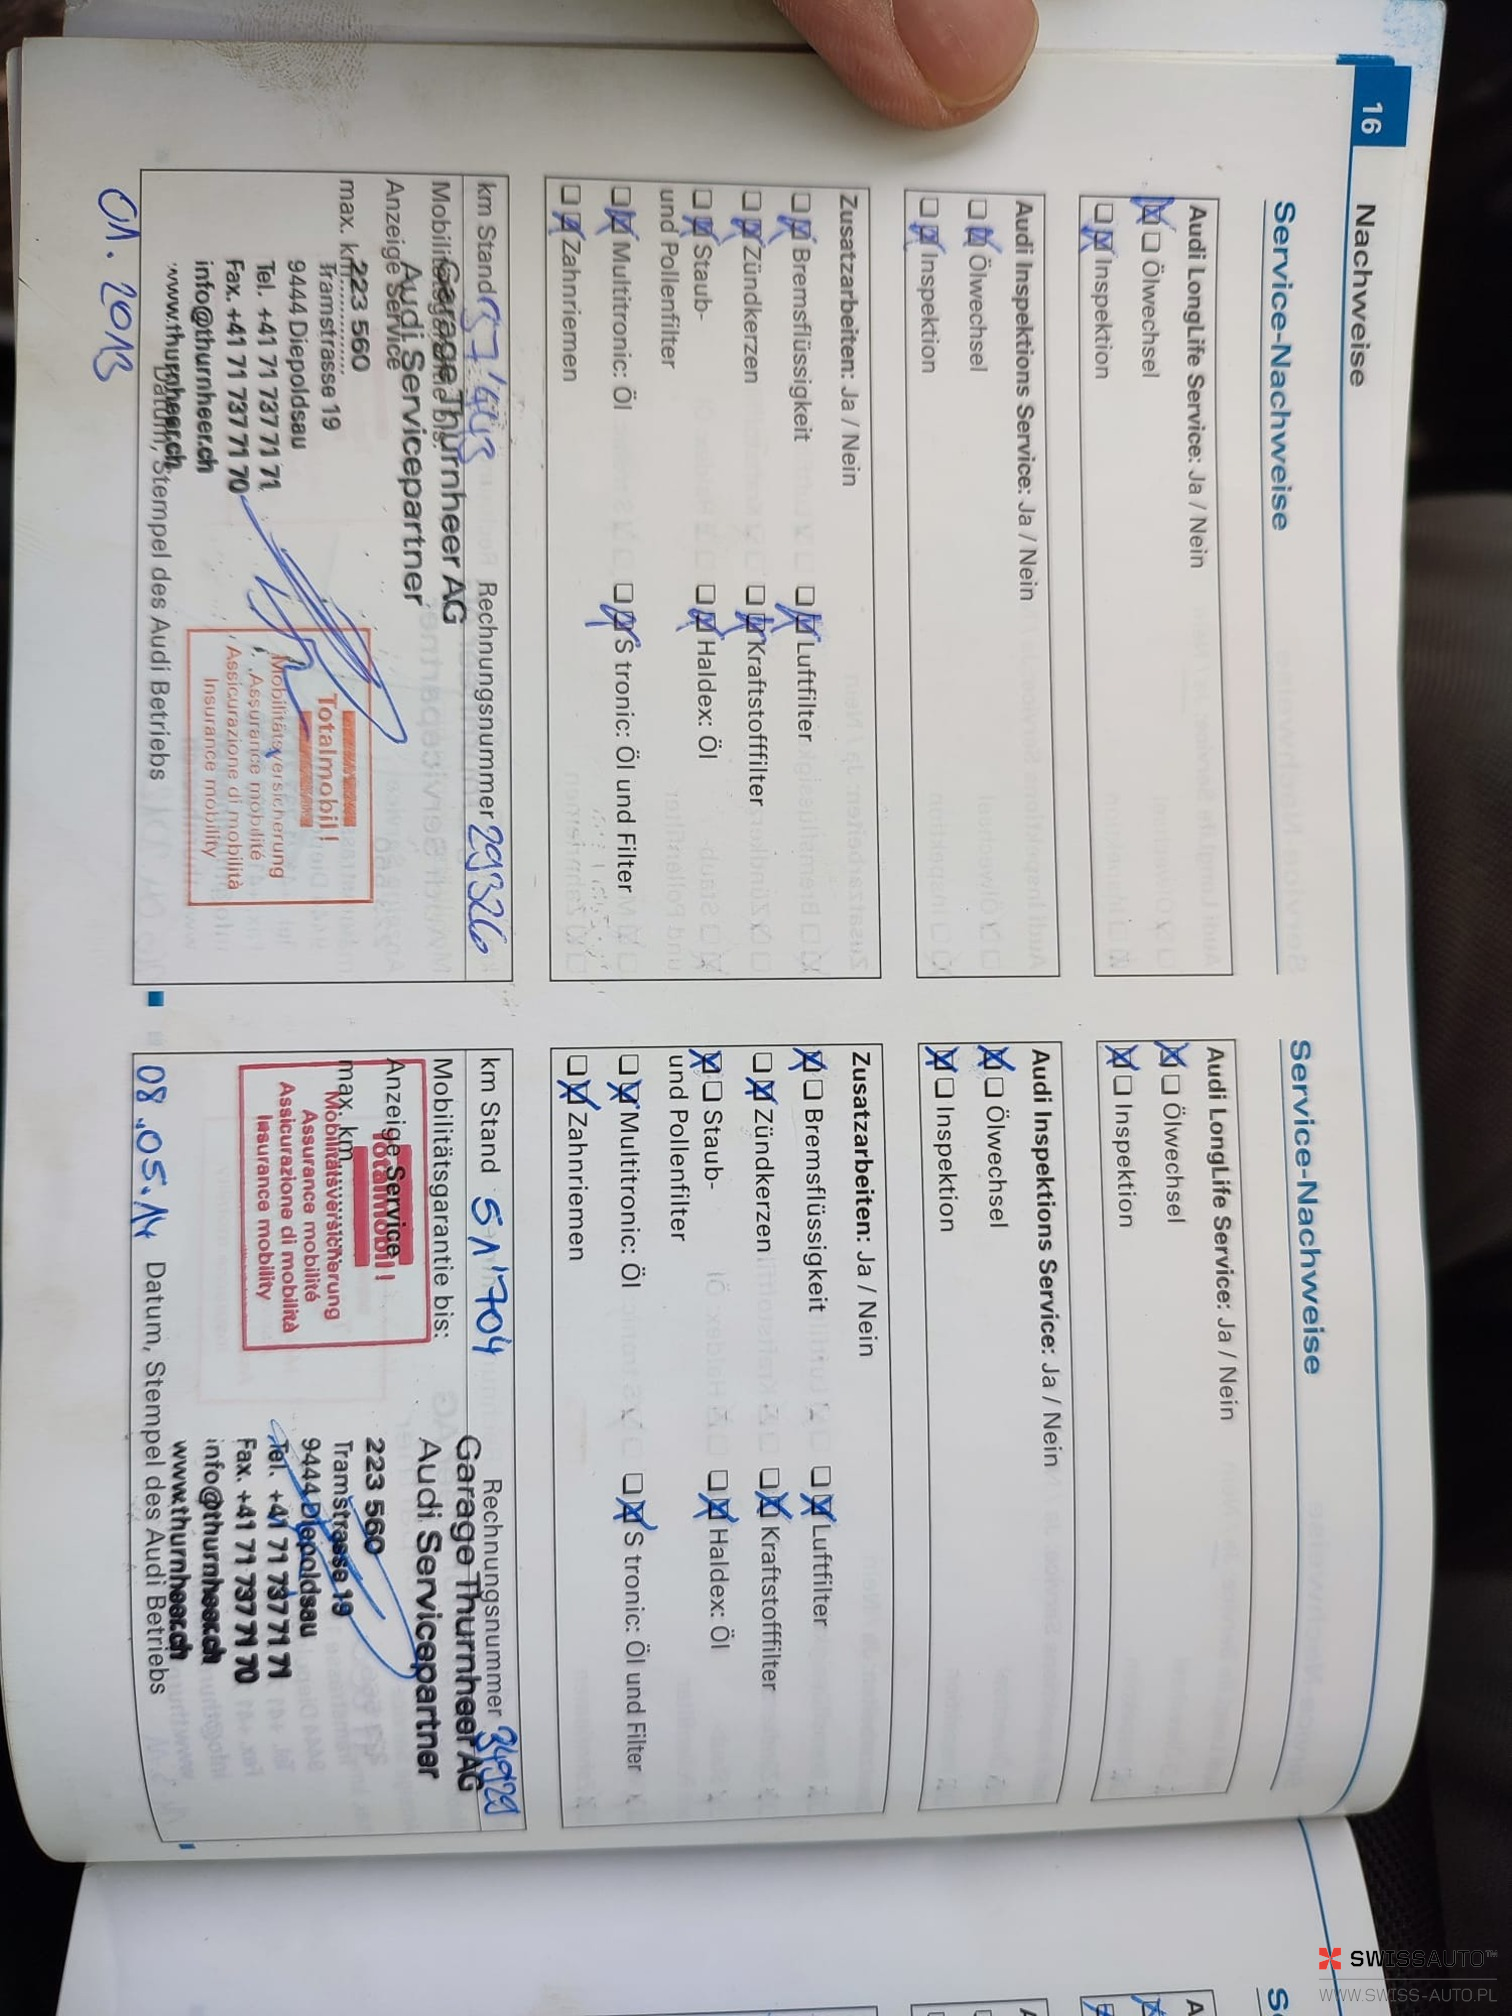 16
Nachweise
Service-Nachweise
Audi LongLife Service: Ja / Nein
Ölwechsel
Inspektion
Audi Inspektions Service: Ja / Nein
Ölwechsel
Inspektion
Zusatzarbeiten: Ja / Nein
Bremsflüssigkeit
Luftfilter
Zündkerzen
Kraftstofffilter
Staub-
und Pollenfilter
Haldex: Öl
Multitronic: Öl
S tronic: Öl und Filter
Zahnriemen
km Stand
Rechnungsnummer 29326
Garage Thurnheer AG
Audi Servicepartner
Anzeige Service
max. km
223 560
Tramstrasse 19
9444 Diepoldsau
Tel. +41 71 737 71 71
Fax. +41 71 737 71 70
info@thurnheer.ch
www.thurnheer.ch
Totalmobil!
Mobilitätsversicherung
Assurance mobilité
Assicurazione di mobilità
Insurance mobility
Datum, Stempel des Audi Betriebs
01. 2013
Service-Nachweise
Audi LongLife Service: Ja / Nein
Ölwechsel
Inspektion
Audi Inspektions Service: Ja / Nein
Ölwechsel
Inspektion
Zusatzarbeiten: Ja / Nein
Bremsflüssigkeit
Luftfilter
Zündkerzen
Kraftstofffilter
Staub-
und Pollenfilter
Haldex: Öl
Multitronic: Öl
S tronic: Öl und Filter
Zahnriemen
km Stand 51'704
Rechnungsnummer 34929
Mobilitätsgarantie bis:
Garage Thurnheer AG
Audi Servicepartner
Anzeige Service
max. km
Totalmobil!
Mobilitätsversicherung
Assurance mobilité
Assicurazione di mobilità
Insurance mobility
223 560
Tramstrasse 19
9444 Diepoldsau
Tel. +41 71 737 71 71
Fax. +41 71 737 71 70
info@thurnheer.ch
www.thurnheer.ch
08.05.14 Datum, Stempel des Audi Betriebs
SWISSAUTO™
WWW.SWISS-AUTO.PL